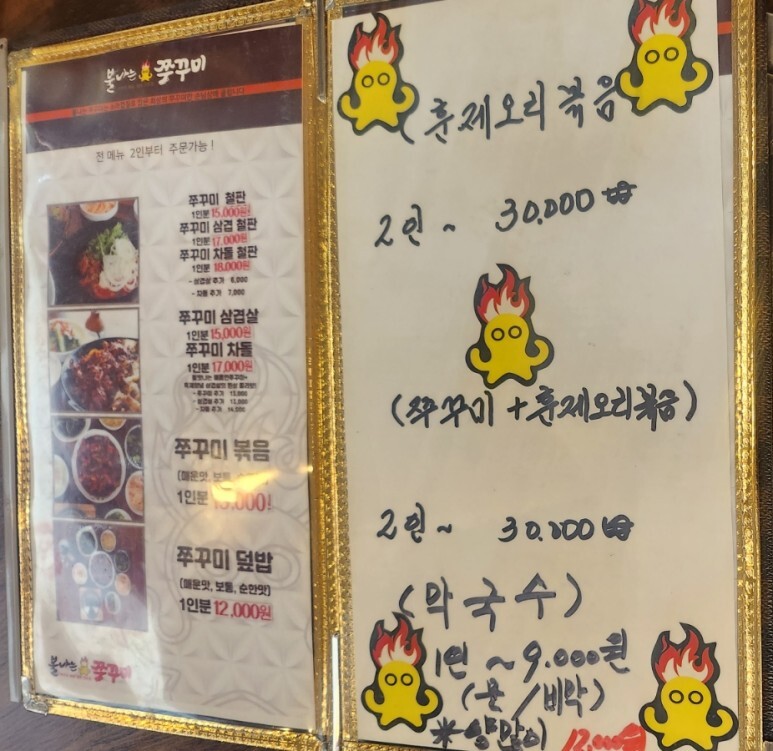 불나는 쭈꾸미
전 메뉴 2인부터 주문가능!
쭈꾸미 철판
1인분 15,000원
쭈꾸미 삼겹 철판
1인분 17,000원
쭈꾸미 차돌 철판
1인분 18,000원
- 삼겹살 추가 6,000
- 차돌 추가 7,000
쭈꾸미 삼겹살
1인분 15,000원
쭈꾸미 차돌
1인분 17,000원
쭈꾸미 볶음
(매운맛, 보통, 순한맛)
1인분
쭈꾸미 덮밥
(매운맛, 보통, 순한맛)
1인분 12,000원
불나는 쭈꾸미
(훈제오리볶음
2인~ 30.000₩
(쭈꾸미+훈제오리볶음)
2인~ 30.000₩
(막국수)
1인~9.000원
(물/비막)
*양많이 12.000